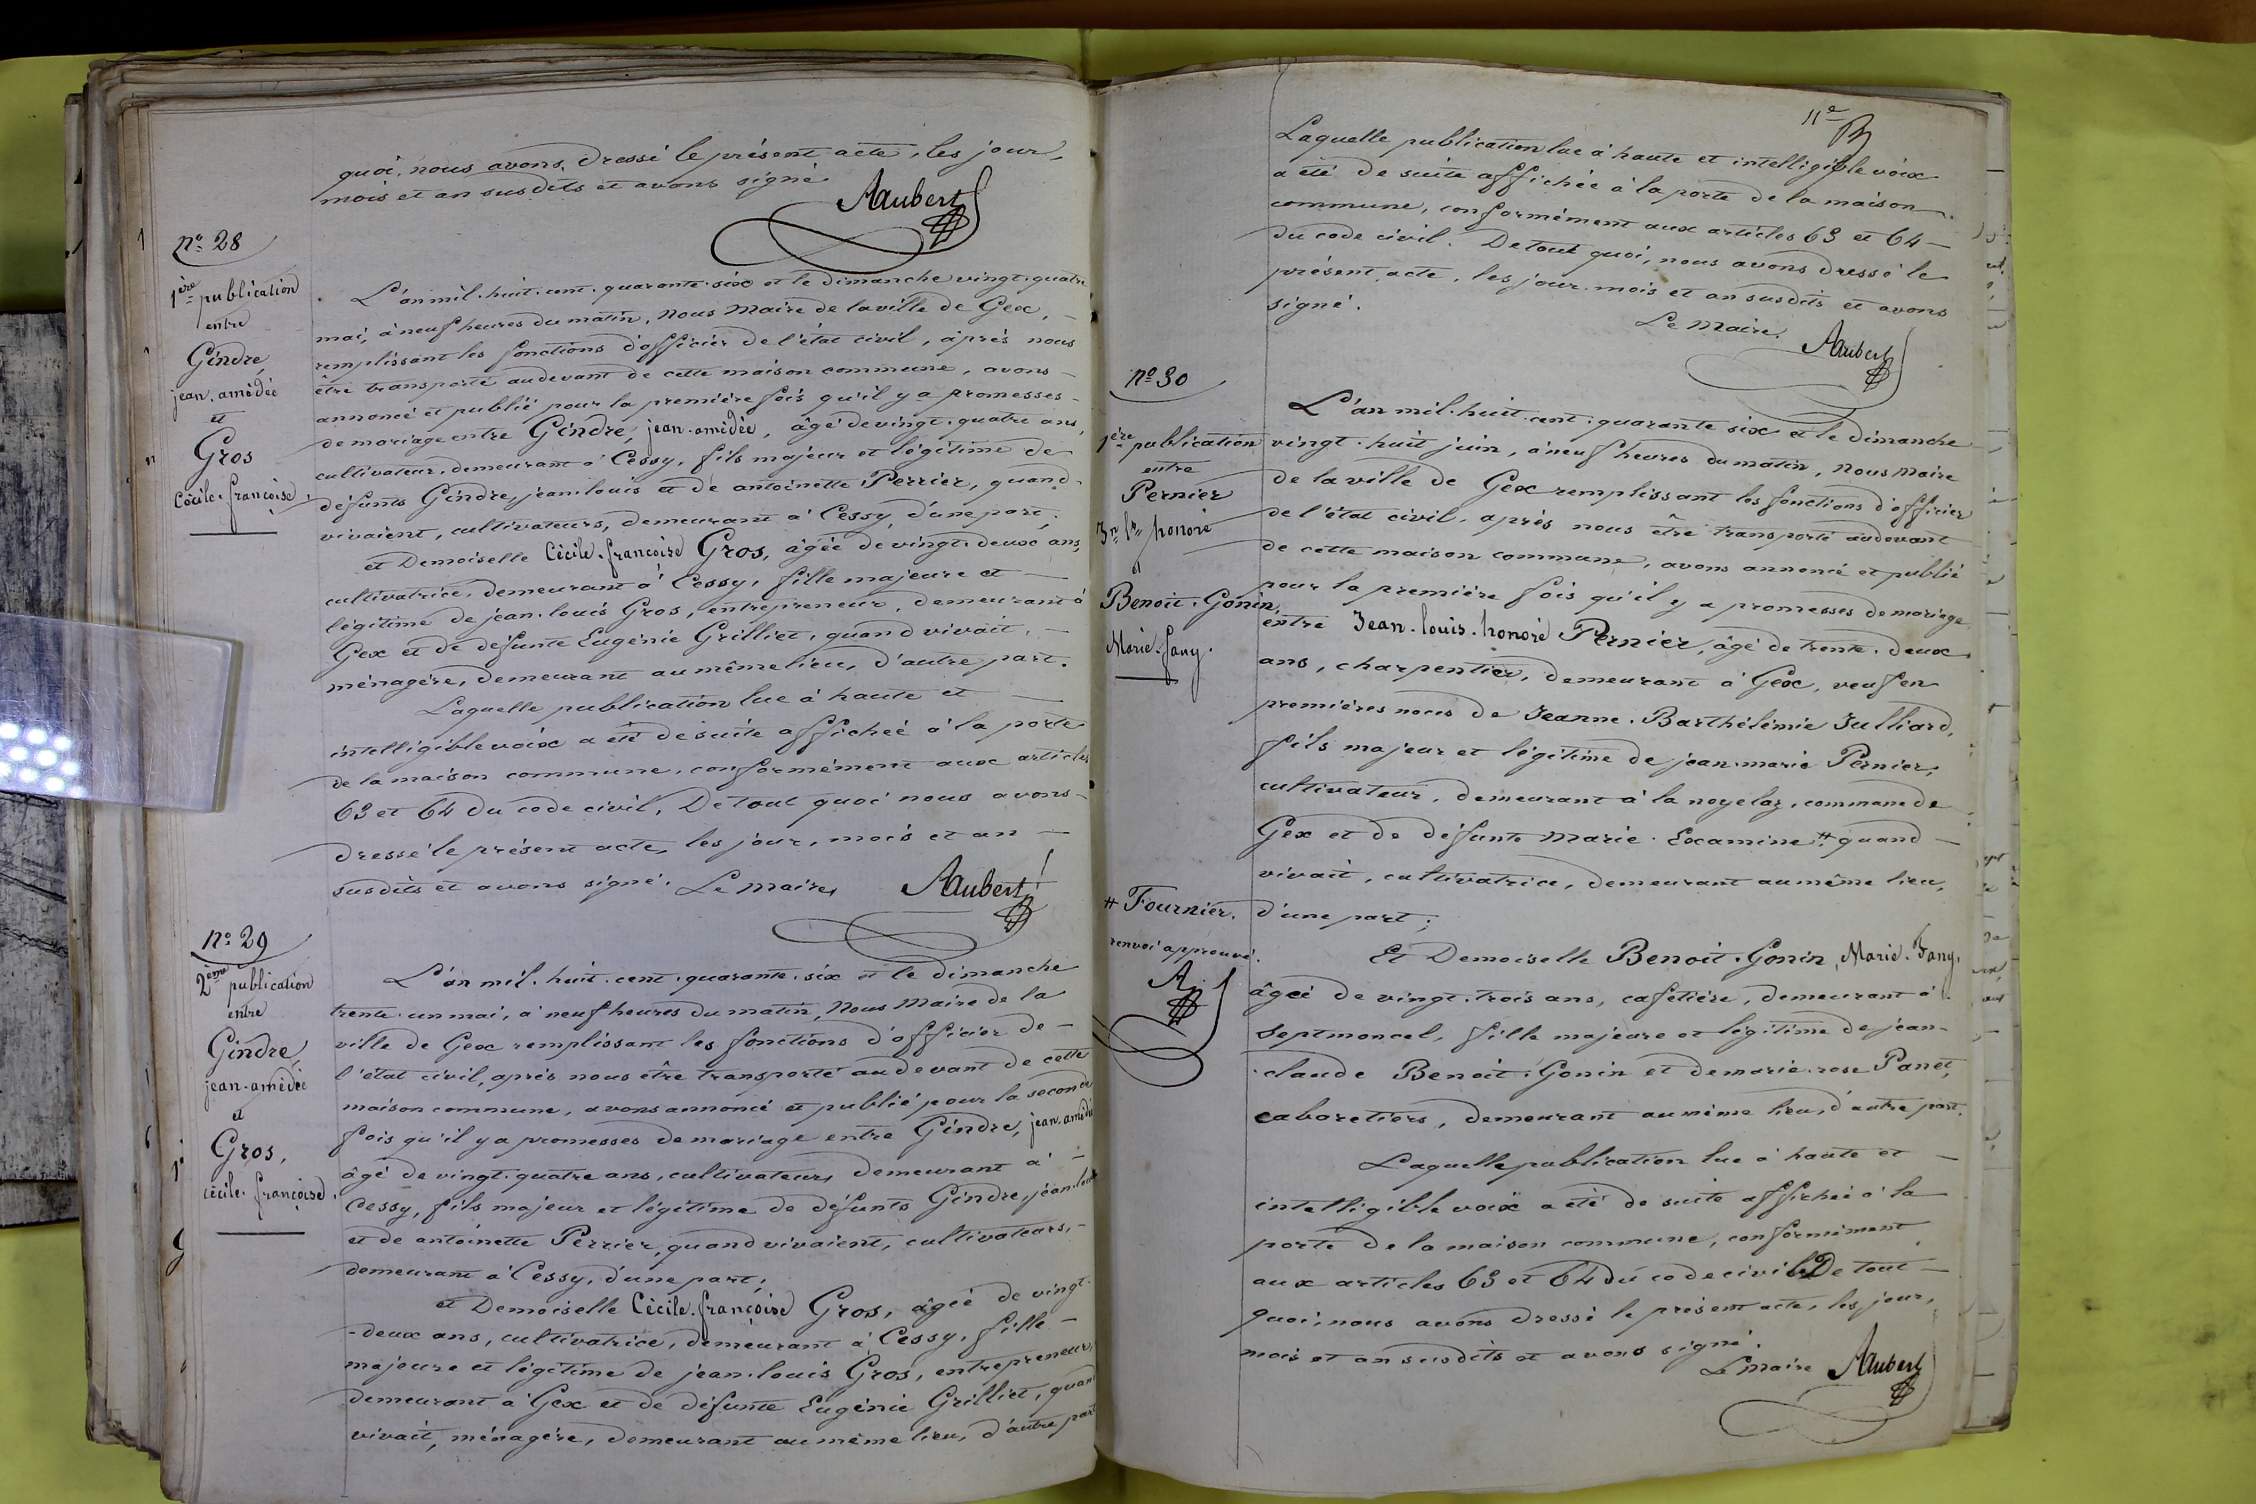 quoi, nous avons dressé le présent acte, les jour,
mois et an susdits et avons signé.
Aaubert
nº 28
1ère publication
entre
Gindre,
jean-amédée
et
Gros
Cécile-françoise.
L'an mil-huit-cent-quarante-six et le dimanche vingt-quatre
mai, à neuf heures du matin, Nous Maire de la ville de Gex, —
remplissant les fonctions d'officier de l'état civil, après nous
être transporté audevant de cette maison commune, avons —
annoncé et publié pour la première fois qu'il y a promesses —
de mariage entre Gindre, jean-amédée, âgé de vingt-quatre ans,
cultivateur, demeurant à Cessy, fils majeur et légitime de
défunts Gindre, jean-louis et de antoinette Perrier, quand —
vivaient, cultivateurs, demeurant à Cessy, d'une part;
et Demoiselle Cécile-françoise Gros, âgée de vingt-deux ans,
cultivatrice, demeurant à Cessy, fille majeure et —
légitime de jean-louis Gros, entrepreneur, demeurant à
Gex et de défunte Eugénie Grilliet, quand vivait, —
ménagère, demeurant au même lieu, d'autre part.
Laquelle publication lue à haute et —
intelligible voix a été de suite affichée à la porte
de la maison commune, conformément aux articles
63 et 64 du code civil, De tout quoi nous avons —
dressé le présent acte, les jour, mois et an —
susdits et avons signé. Le Maire, Aaubert
nº 29
2ème publication
entre
Gindre,
jean-amédée
et
Gros,
cécile-françoise.
L'an mil-huit-cent-quarante-six et le dimanche
trente-un mai, à neuf heures du matin, Nous Maire de la
ville de Gex remplissant les fonctions d'officier de —
l'état civil, après nous être transporté audevant de cette
maison commune, avons annoncé et publié pour la seconde
fois qu'il y a promesses de mariage entre Gindre, jean-amédée
âgé de vingt-quatre ans, cultivateur, demeurant à —
Cessy, fils majeur et légitime de défunts Gindre, jean-louis
et de antoinette Perrier, quand vivaient, cultivateurs, —
demeurant à Cessy, d'une part;
et Demoiselle Cécile-françoise Gros, âgée de vingt-
-deux ans, cultivatrice, demeurant à Cessy, fille —
majeure et légitime de jean-louis Gros, entrepreneur,
demeurant à Gex et de défunte Eugénie Grilliet, quand
vivait, ménagère, demeurant au même lieu, d'autre part
11e
Laquelle publication lue à haute et intelligible voix
a été de suite affichée à la porte de la maison —
commune, conformément aux articles 63 et 64 —
du code civil. De tout quoi, nous avons dressé le
présent acte, les jour, mois et an susdits et avons
signé.
Le Maire, Aaubert
nº 30
1ère publication
entre
Pernier
Jn Ls honoré
et
Benoit-Gonin,
Marie-fany.
L'an mil-huit-cent-quarante six et le dimanche
vingt-huit juin, à neuf heures du matin, Nous Maire
de la ville de Gex remplissant les fonctions d'officier
de l'état civil, après nous être transporté audevant
de cette maison commune, avons annoncé et publié
pour la première fois qu'il y a promesses de mariage
entre Jean-louis-honoré Pernier, âgé de trente-deux
ans, charpentier, demeurant à Gex, veuf en
premières noces de Jeanne-Barthélémie Julliard,
fils majeur et légitime de jean-marie Pernier,
cultivateur, demeurant à la noyelaz, commune de
Gex et de défunte Marie-Examine # quand —
vivait, cultivatrice, demeurant au même lieu,
d'une part;
# Fournier.
renvoi approuvé.
A.
Et Demoiselle Benoit-Gonin, Marie-Fany,
âgée de vingt-trois ans, cafetière, demeurant à
Septmoncel, fille majeure et légitime de jean-
-claude Benoit-Gonin et de marie-rose Panet,
cabaretiers, demeurant au même lieu, d'autre part.
Laquelle publication lue à haute et —
intelligible voix a été de suite affichée à la
porte de la maison commune, conformément
aux articles 63 et 64 du code civil. De tout —
quoi, nous avons dressé le présent acte, les jour,
mois et an susdits et avons signé.
Le Maire Aaubert